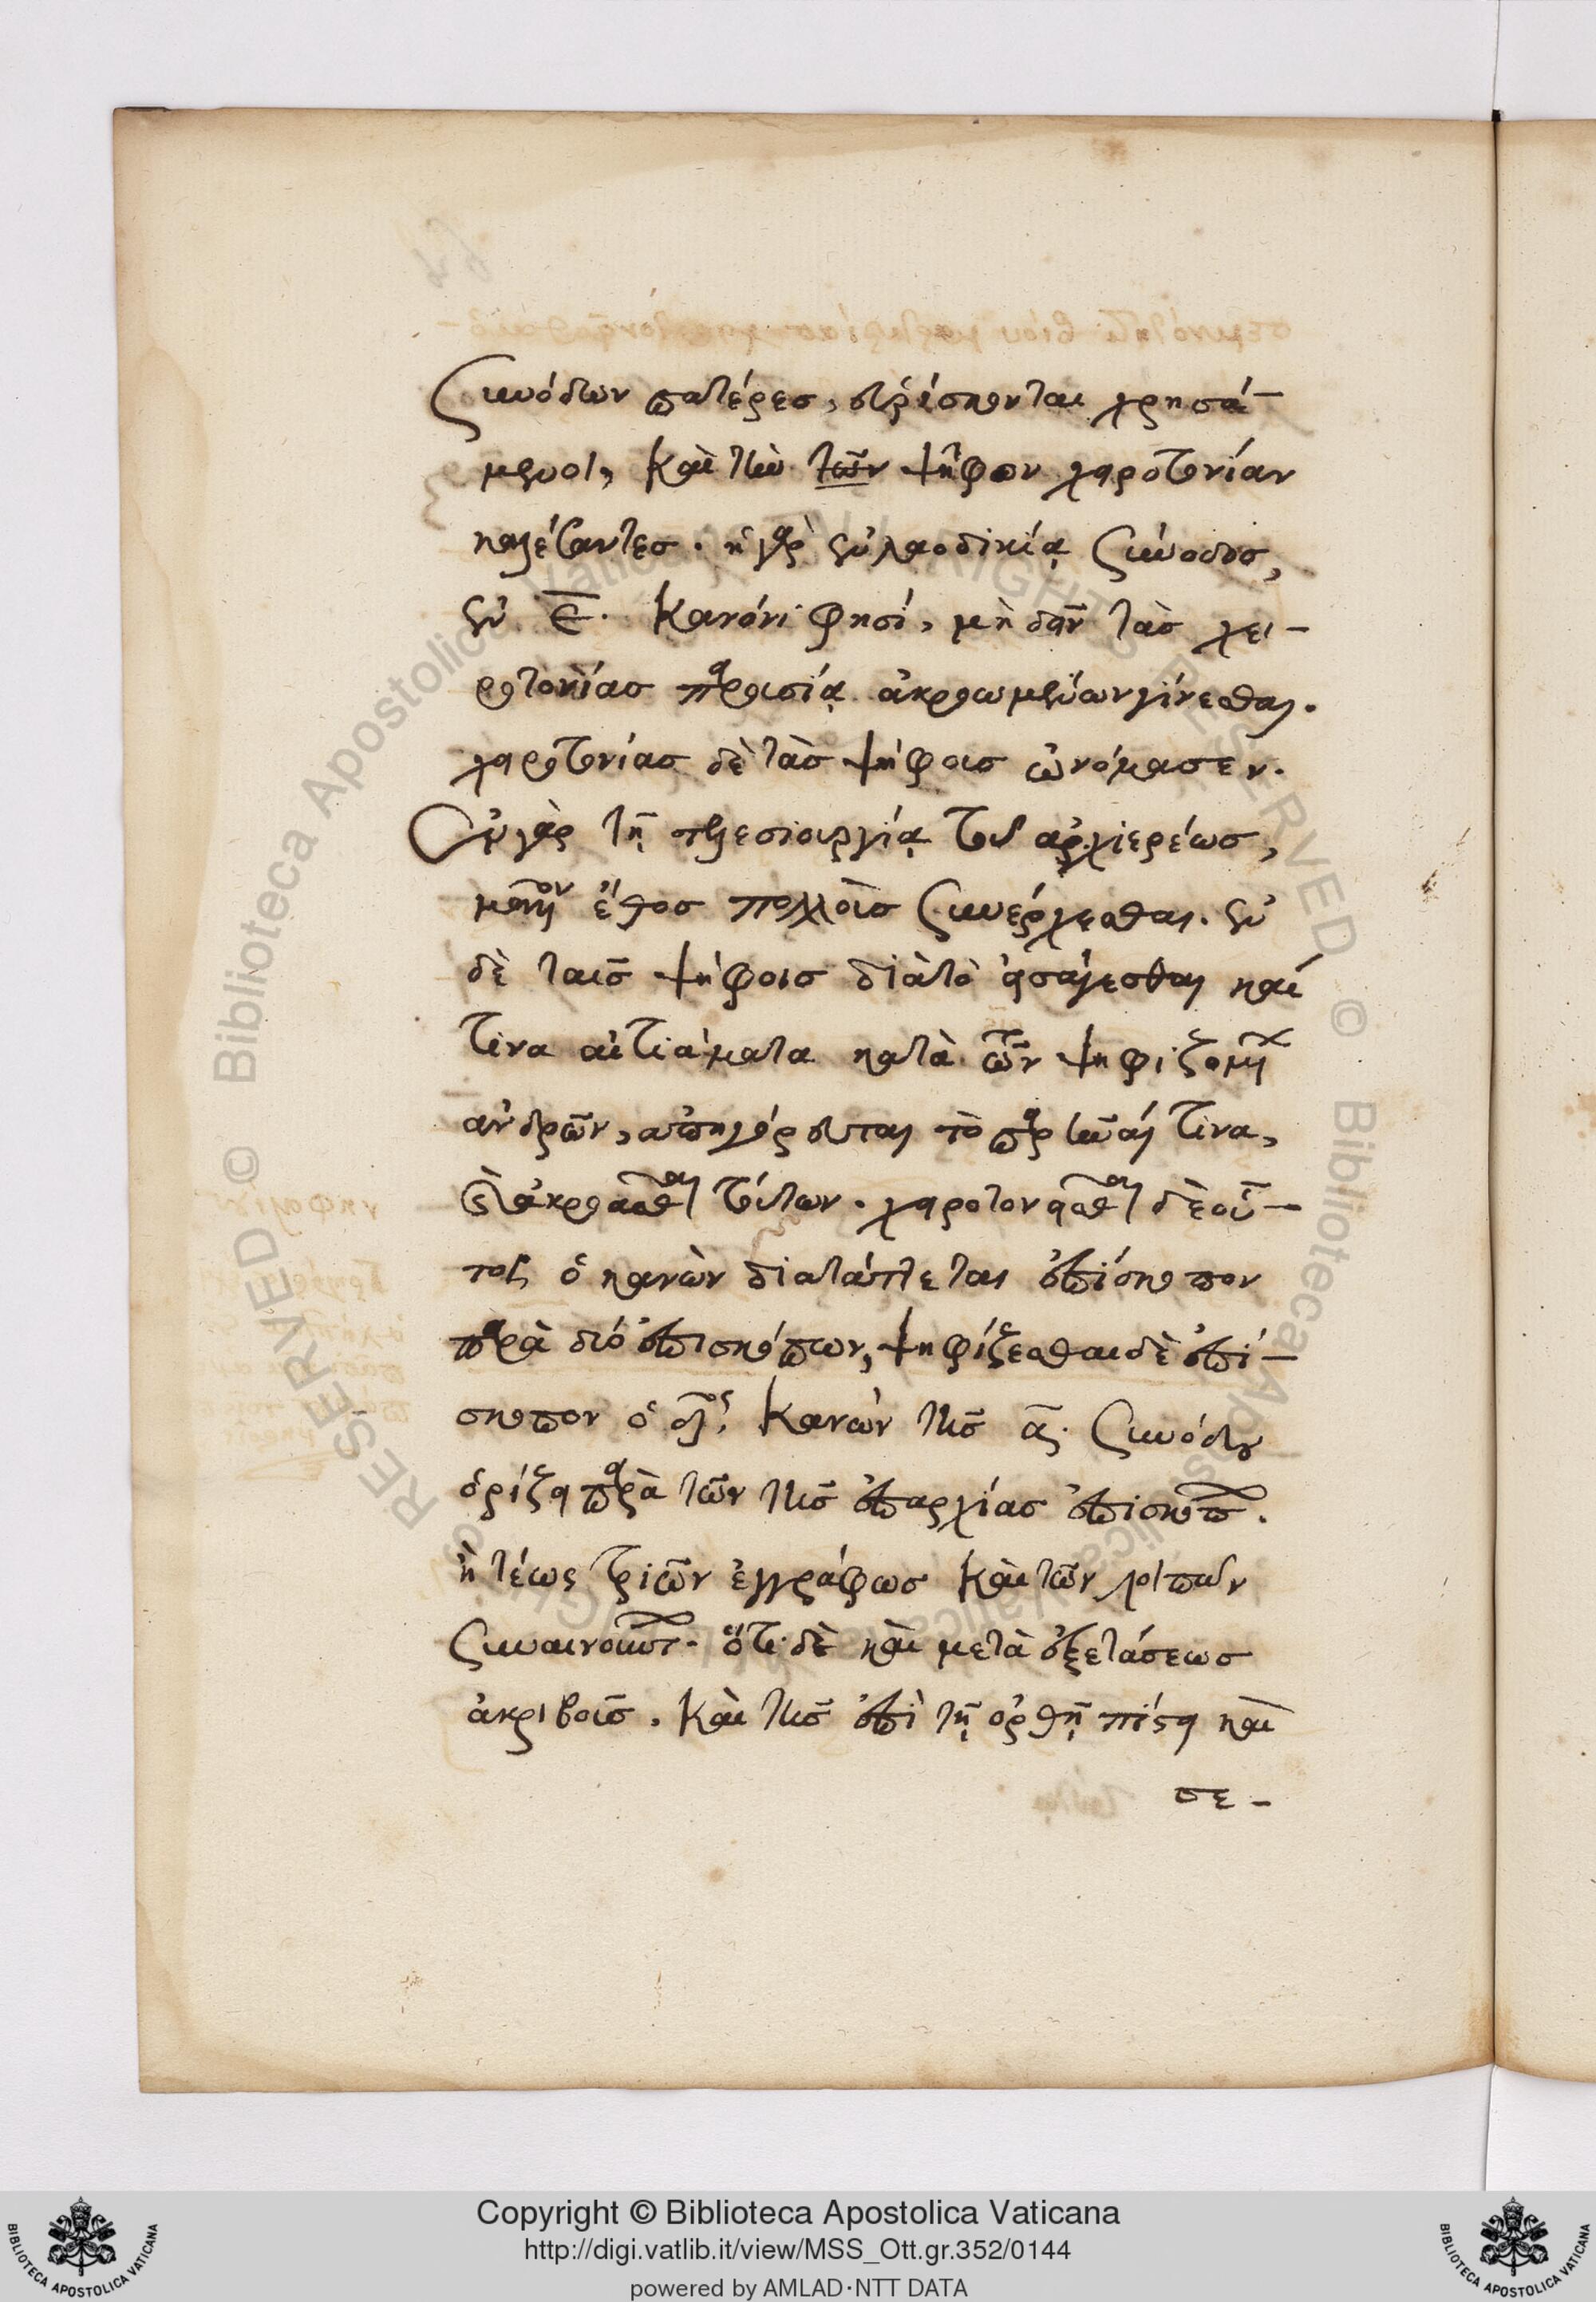 συνόδων πατέρες, εὑρίσκονται χρησά-
μενοι, καὶ τὴν τῶν ψῆφον χειροτονίαν
καλέσαντες. ἡ γὰρ ἐν λαοδικίᾳ σύνοδος,
ἐν ε. κανόνι φησί, μὴ δεῖν τὰς χει-
ροτονίας παρουσίᾳ ἀκροωμένων γίνεσθαι.
χειροτονίας δὲ τὰς ψήφους ὠνόμασεν.
ἐν γὰρ τῇ τελεσιουργίᾳ τοῦ ἀρχιερέως,
μᾶλλον ἔθος πολλοῖς συνέρχεσθαι. ἐν
δὲ ταῖς ψήφοις διὰ τὸ εἰσάγεσθαι καί
τινα αἰτιάματα κατὰ τῶν ψηφιζομένων
ἀνδρῶν, ἀπηγόρευται τὸ παρεῖναί τινα,
καὶ ἀκροᾶσθαι τούτων. χειροτονεῖσθαι δὲ οὗ-
τος ὁ κανὼν διατάττεται ἐπίσκοπον
παρὰ δύο ἐπισκόπων, ψηφίζεσθαι δὲ ἐπί-
σκοπον ὁ δ. κανὼν τῆς α. συνόδου
ὁρίζει παρὰ τῶν τῆς ἐπαρχίας ἐπισκόπων.
ἢ τέως τριῶν ἐγγράφως καὶ τῶν λοιπῶν
συναινούντων. ὅτι δὲ καὶ μετὰ ἐξετάσεως
ἀκριβοῦς. καὶ τῆς ἐπὶ τῇ ὀρθῇ πίστει καὶ
σε-
Copyright © Biblioteca Apostolica Vaticana
http://digi.vatlib.it/view/MSS_Ott.gr.352/0144
powered by AMLAD·NTT DATA